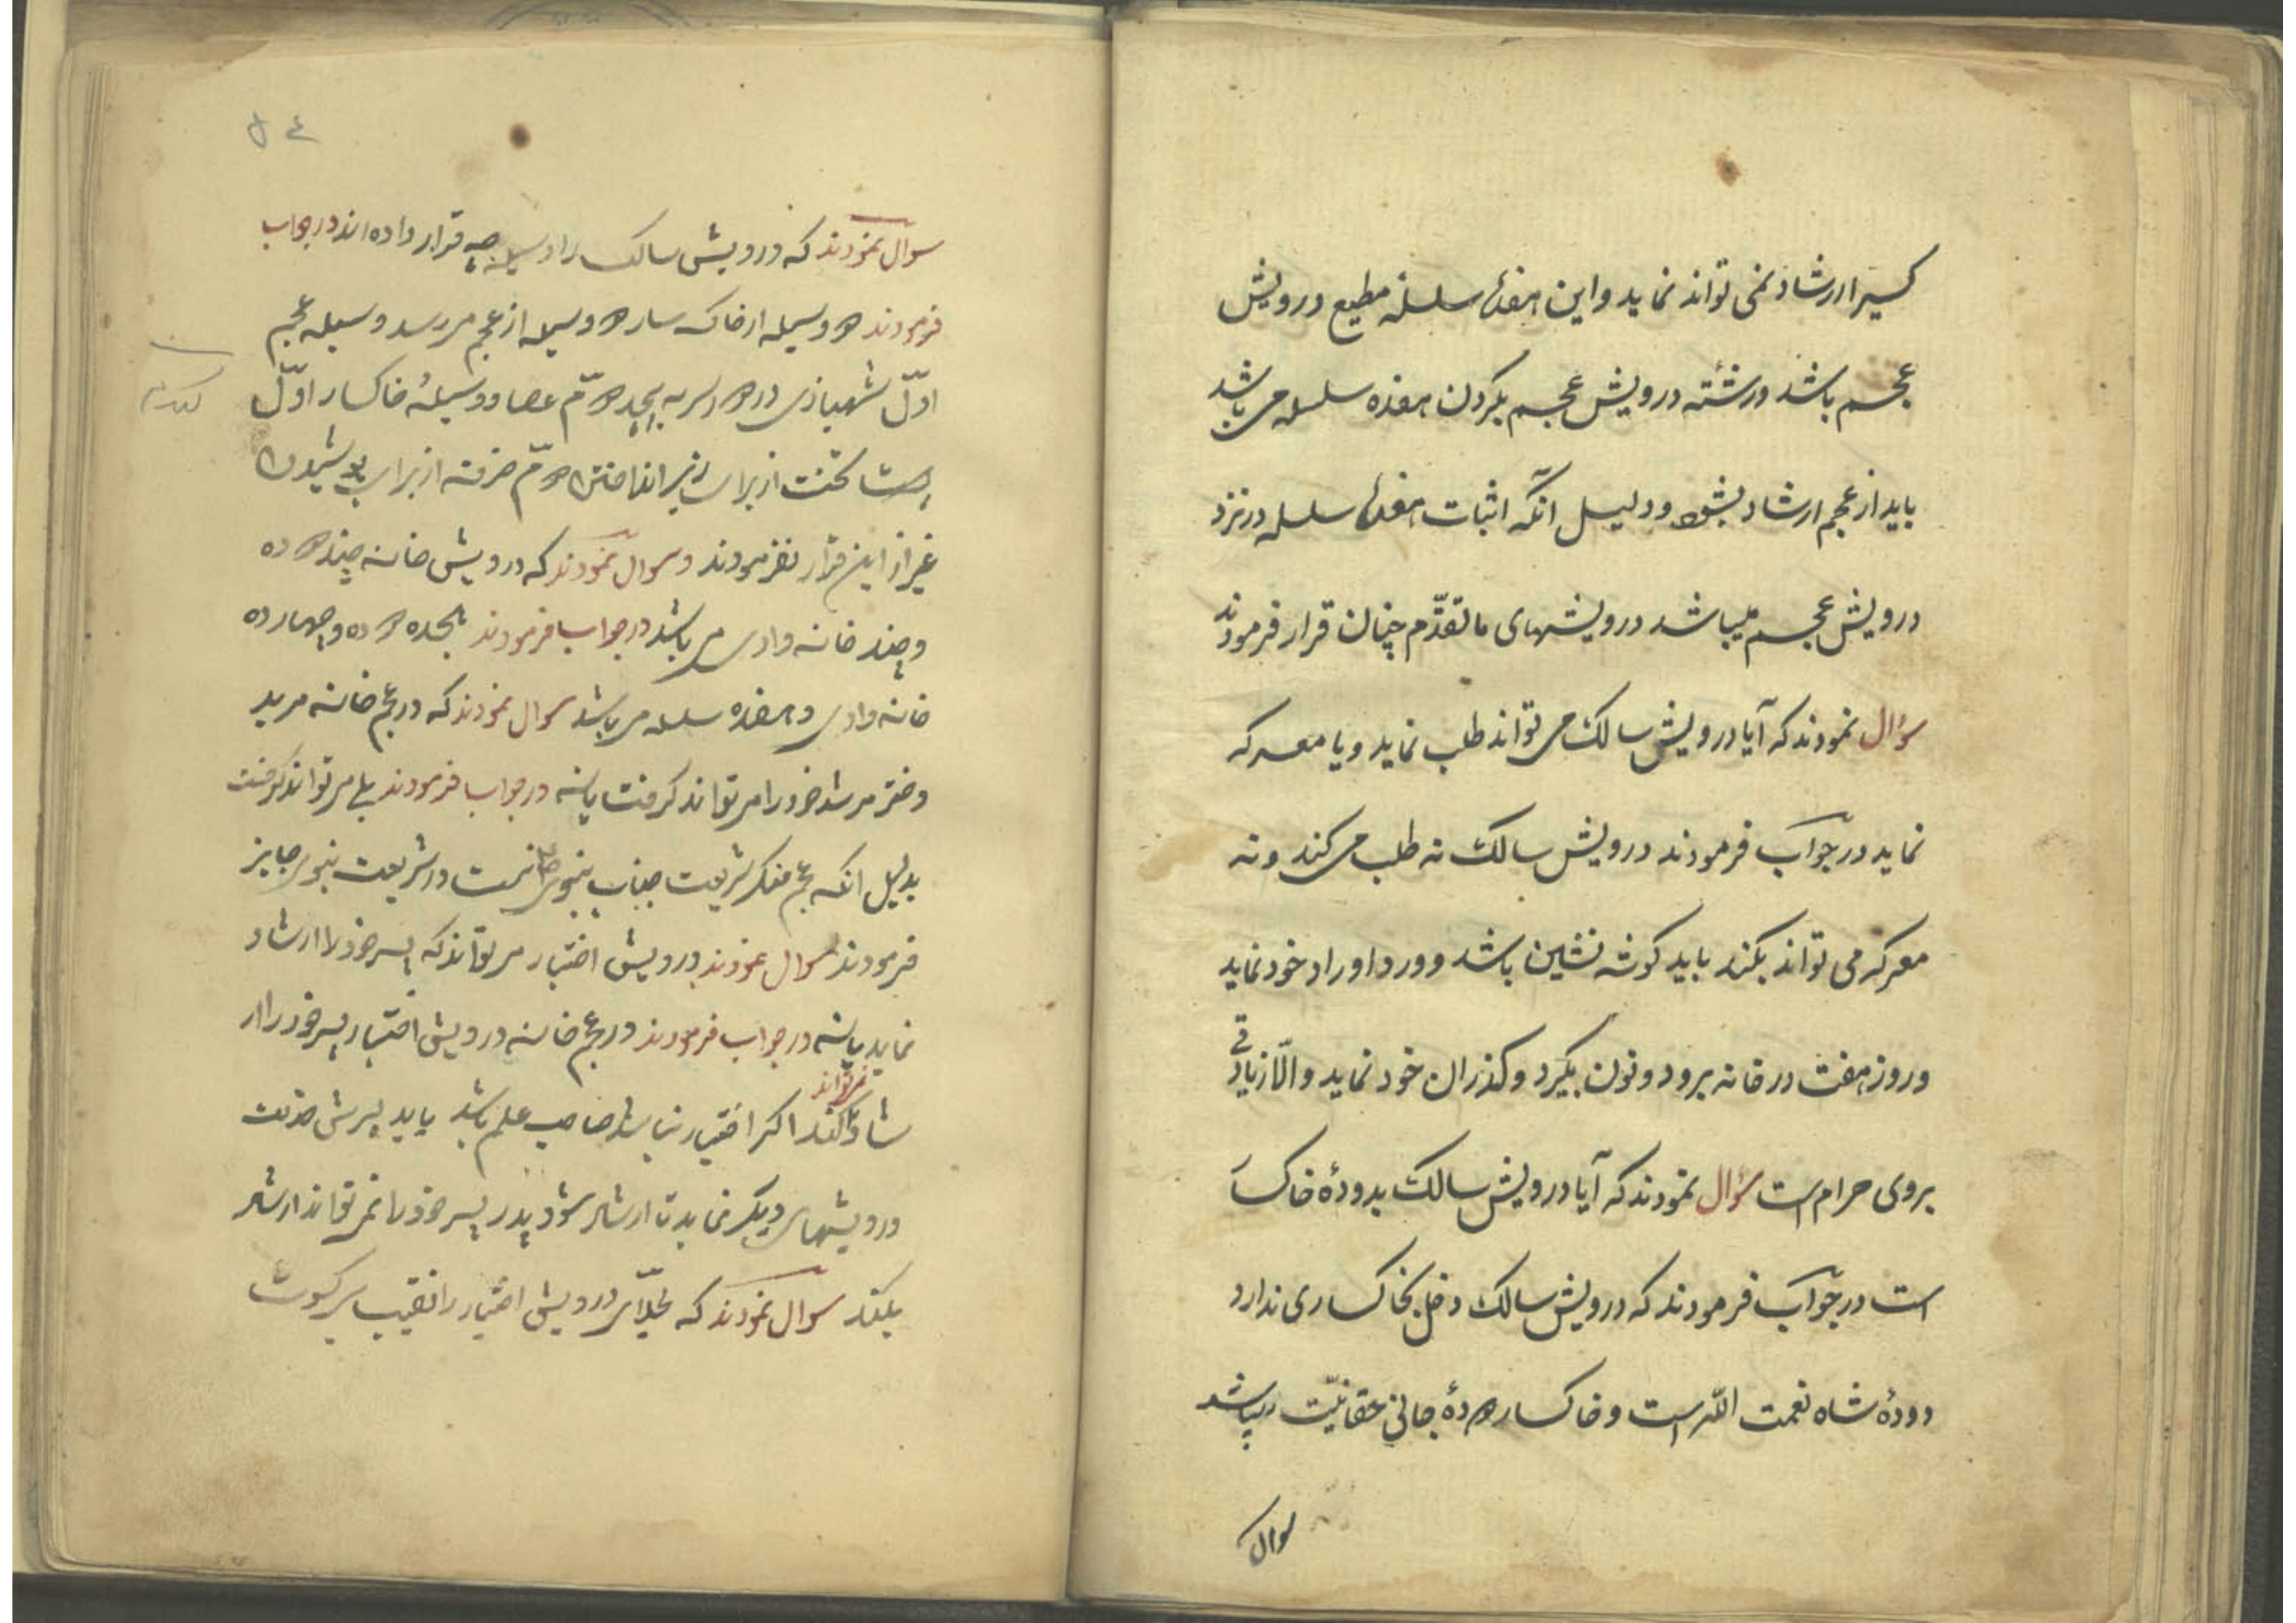 کسیرا ارشاد نمی تواند نماید و این هفده سلسلهٔ مطیع درویش
عجم باشد و رشتهٔ درویش عجم بگردن هفده سلسله می باشد
باید از عجم ارشاد بشود و دلیل آنکه اثبات هفده سلسله در نزد
درویش عجم میباشد درویشهای ما تقدّم چنان قرار فرمودند
سؤال نمودند که آیا درویش سالک می تواند طلب نماید و یا معرکه
نماید در جواب فرمودند درویش سالک نه طلب می کند و نه
معرکه می تواند بکند باید کوشه نشین باشد و ورد اوراد خود نماید
و روز هفت در خانه برود و نون بگیرد و کذران خود نماید و الّا زیادتی
بروی حرام است سؤال نمودند که آیا درویش سالک بدودهٔ خاکسا
است در جواب فرمودند که درویش سالک دخل بخاکساری ندارد
دودهٔ شاه نعمت اللّه است و خاکسار دودهٔ جانی حقانیّت میباشد
سوال
سوال نمودند که درویش سالک را وسیله چه قرار داده اند در جواب
فرمودند دو وسیله از خاکسار دو وسیله از عجم میرسد وسیله عجم
اوّل شهبازی در دوم عصا و وسیلهٔ خاکسار اوّل
تخت از برای زیر انداختن دوّم خرقه از برای پوشیدن
غیر از این قرار نفرمودند و سوال نمودند که درویش خانه چند دوده
و چند خانه وادی می باشد در جواب فرمودند هجده دوده و چهارده
خانه وادی و هفده سلسله می باشد سوال نمودند که در عجم خانه مرید
دختر مرشد خود را میتواند کرفت یا نه در جواب فرمودند بلی میتواند کرفت
بدلیل انکه عجم منکر شریعت جناب نبوی نیست در شریعت نبوی جایز
فرمودند سوال نمودند درویش اختیار میتواند که پسر خود را ارشاد
نماید یا نه در جواب فرمودند در عجم خانه درویش اختیار پسر خود را ار
نمیتواند
شاد کند اکر اختیار نباشد صاحب علم باشد باید پسرش خدمت
درویشهای دیگر نماید تا ارشاد شود پدر پسر خود را نمی تواند ارشاد
بکند سوال نمودند که درویش اختیار را نقیب سر کسوت